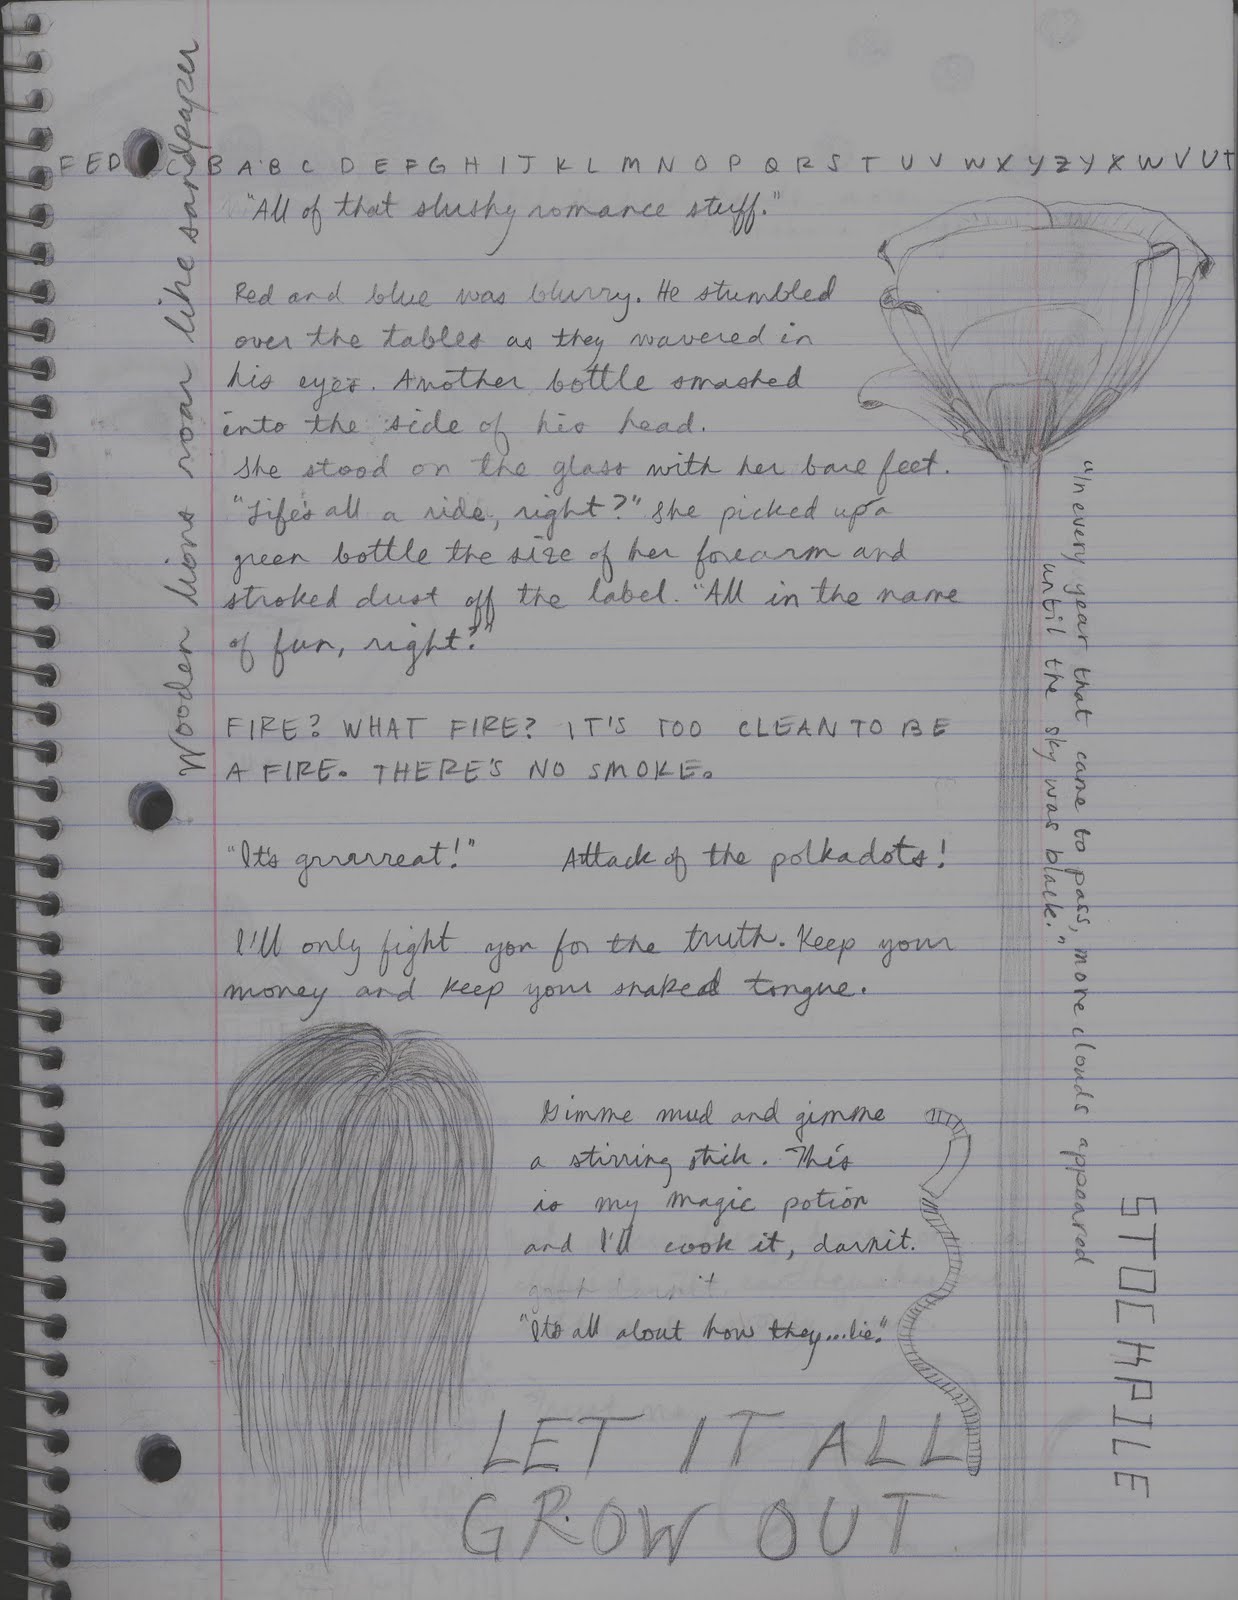 F E D C B A B C D E F G H I J K L M N O P Q R S T U V W X Y Z Y X W V U T
"All of that slushy romance stuff."
Wooden lions roar like sandpaper
Red and blue was blurry. He stumbled
over the tables as they wavered in
his eyes. Another bottle smashed
into the side of his head.
She stood on the glass with her bare feet.
"Life's all a ride, right?" She picked up a
green bottle the size of her forearm and
stroked dust off the label. "All in the name
of fun, right?"
FIRE? WHAT FIRE? IT'S TOO CLEAN TO BE
A FIRE. THERE'S NO SMOKE.
"It's grrrrreat!" Attack of the polkadots!
I'll only fight you for the truth. Keep your
money and keep your snaked tongue.
"In every year that came to pass, more clouds appeared
until the sky was black."
Gimme mud and gimme
a stirring stick. This
is my magic potion
and I'll cook it, darnit.
"It's all about how they...lie."
STOCKPILE
LET IT ALL
GROW OUT